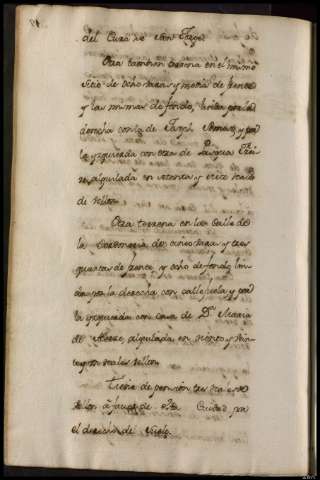 del Cura de San Jorge.
Otra tambien terrena en el mismo
sitio de ocho varas y media de frente
y las mismas de fondo, linda por la
derecha con la de y por
la yzquierda con otra de
alquilada en setenta y ocho reales
de vellon.
Otra terrena en la Calle de
la de cinco varas y tres
quartas de frente, y ocho de fondo, lin
da por la derecha con callejuela y por
la yzquierda con Casa de Dª Maria
de alquilada en ciento y
reales vellon.
Tiene de pension tres reales
vellon a favor de esta Ciudad por
el derecho de suelo.